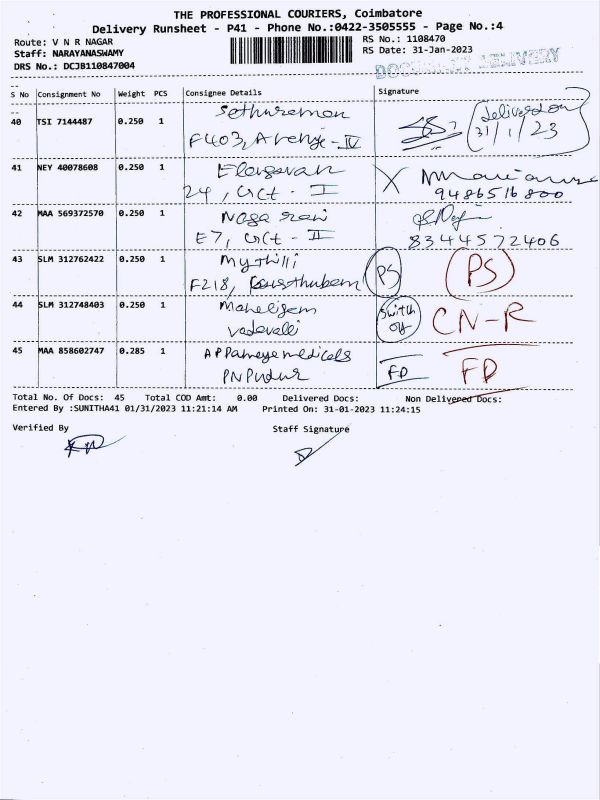 THE PROFESSIONAL COURIERS, Coimbatore
Delivery Runsheet - P41 - Phone No.:0422-3505555 - Page No.:4
Route: V N R NAGAR RS No.: 1108470
Staff: NARAYANASWAMY RS Date: 31-Jan-2023
DRS No.: DCJB110847004 DOCUMENT DELIVERY
S No Consignment No Weight PCS Consignee Details Signature
40 TSI 7144487 0.250 1 Sethuraman Delivered on
F403, A range - IV 31/1/23
41 NEY 40078608 0.250 1 Elangovan
24, Gct - I 9486516800
42 MAA 569372570 0.250 1 Nagaraj
E7, Gct - II 8344572406
43 SLM 312762422 0.250 1 Mythili PS PS
F218,
44 SLM 312748403 0.250 1 Mahaligam Switch off CN-R
vadavalli
45 MAA 858602747 0.285 1 medicals FD FD
PN Pudur
Total No. Of Docs: 45 Total COD Amt: 0.00 Delivered Docs: Non Delivered Docs:
Entered By :SUNITHA41 01/31/2023 11:21:14 AM Printed On: 31-01-2023 11:24:15
Verified By Staff Signature